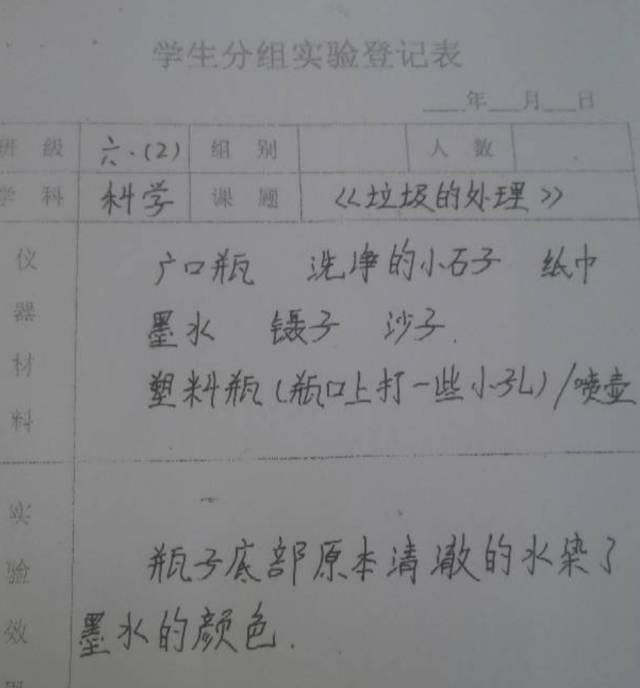 学生分组实验登记表
年 月 日
班级 六.(2) 组别 人数
学科 科学 课题 《垃圾的处理》
仪器材料
广口瓶 洗净的小石子 纸巾
墨水 镊子 沙子.
塑料瓶(瓶口上打一些小孔)/喷壶
实验效
瓶子底部原本清澈的水染了
墨水的颜色.